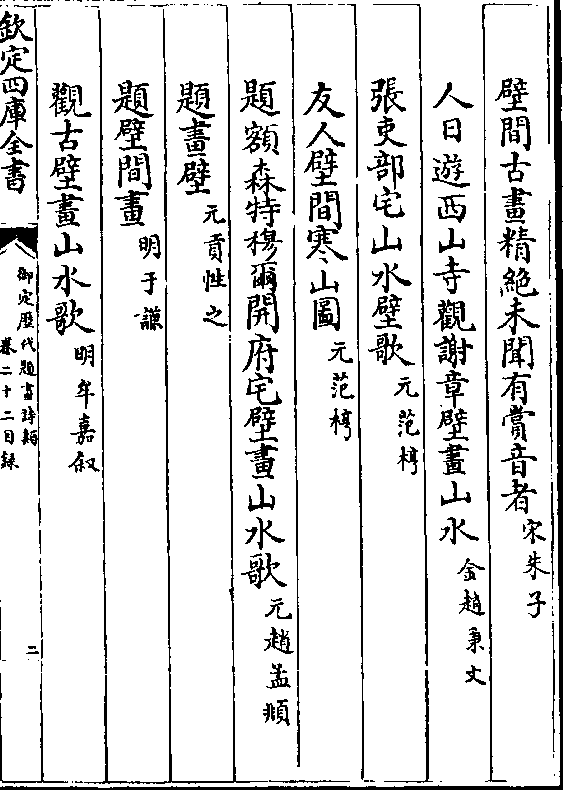 壁間古畫精絶未聞有賞音者 宋朱子
人日遊西山寺觀謝章壁畫山水 金趙秉文
張吏部宅山水壁歌 元范梈
友人壁間寒山圖 元范梈
題額森特穆爾開府宅壁畫山水歌 元趙孟頫
題畫壁 元貢性之
題壁間畫 明于謙
觀古壁畫山水歌 明牟嘉叙
欽定四庫全書
御定歴代題畫詩類
卷二十二目録
二